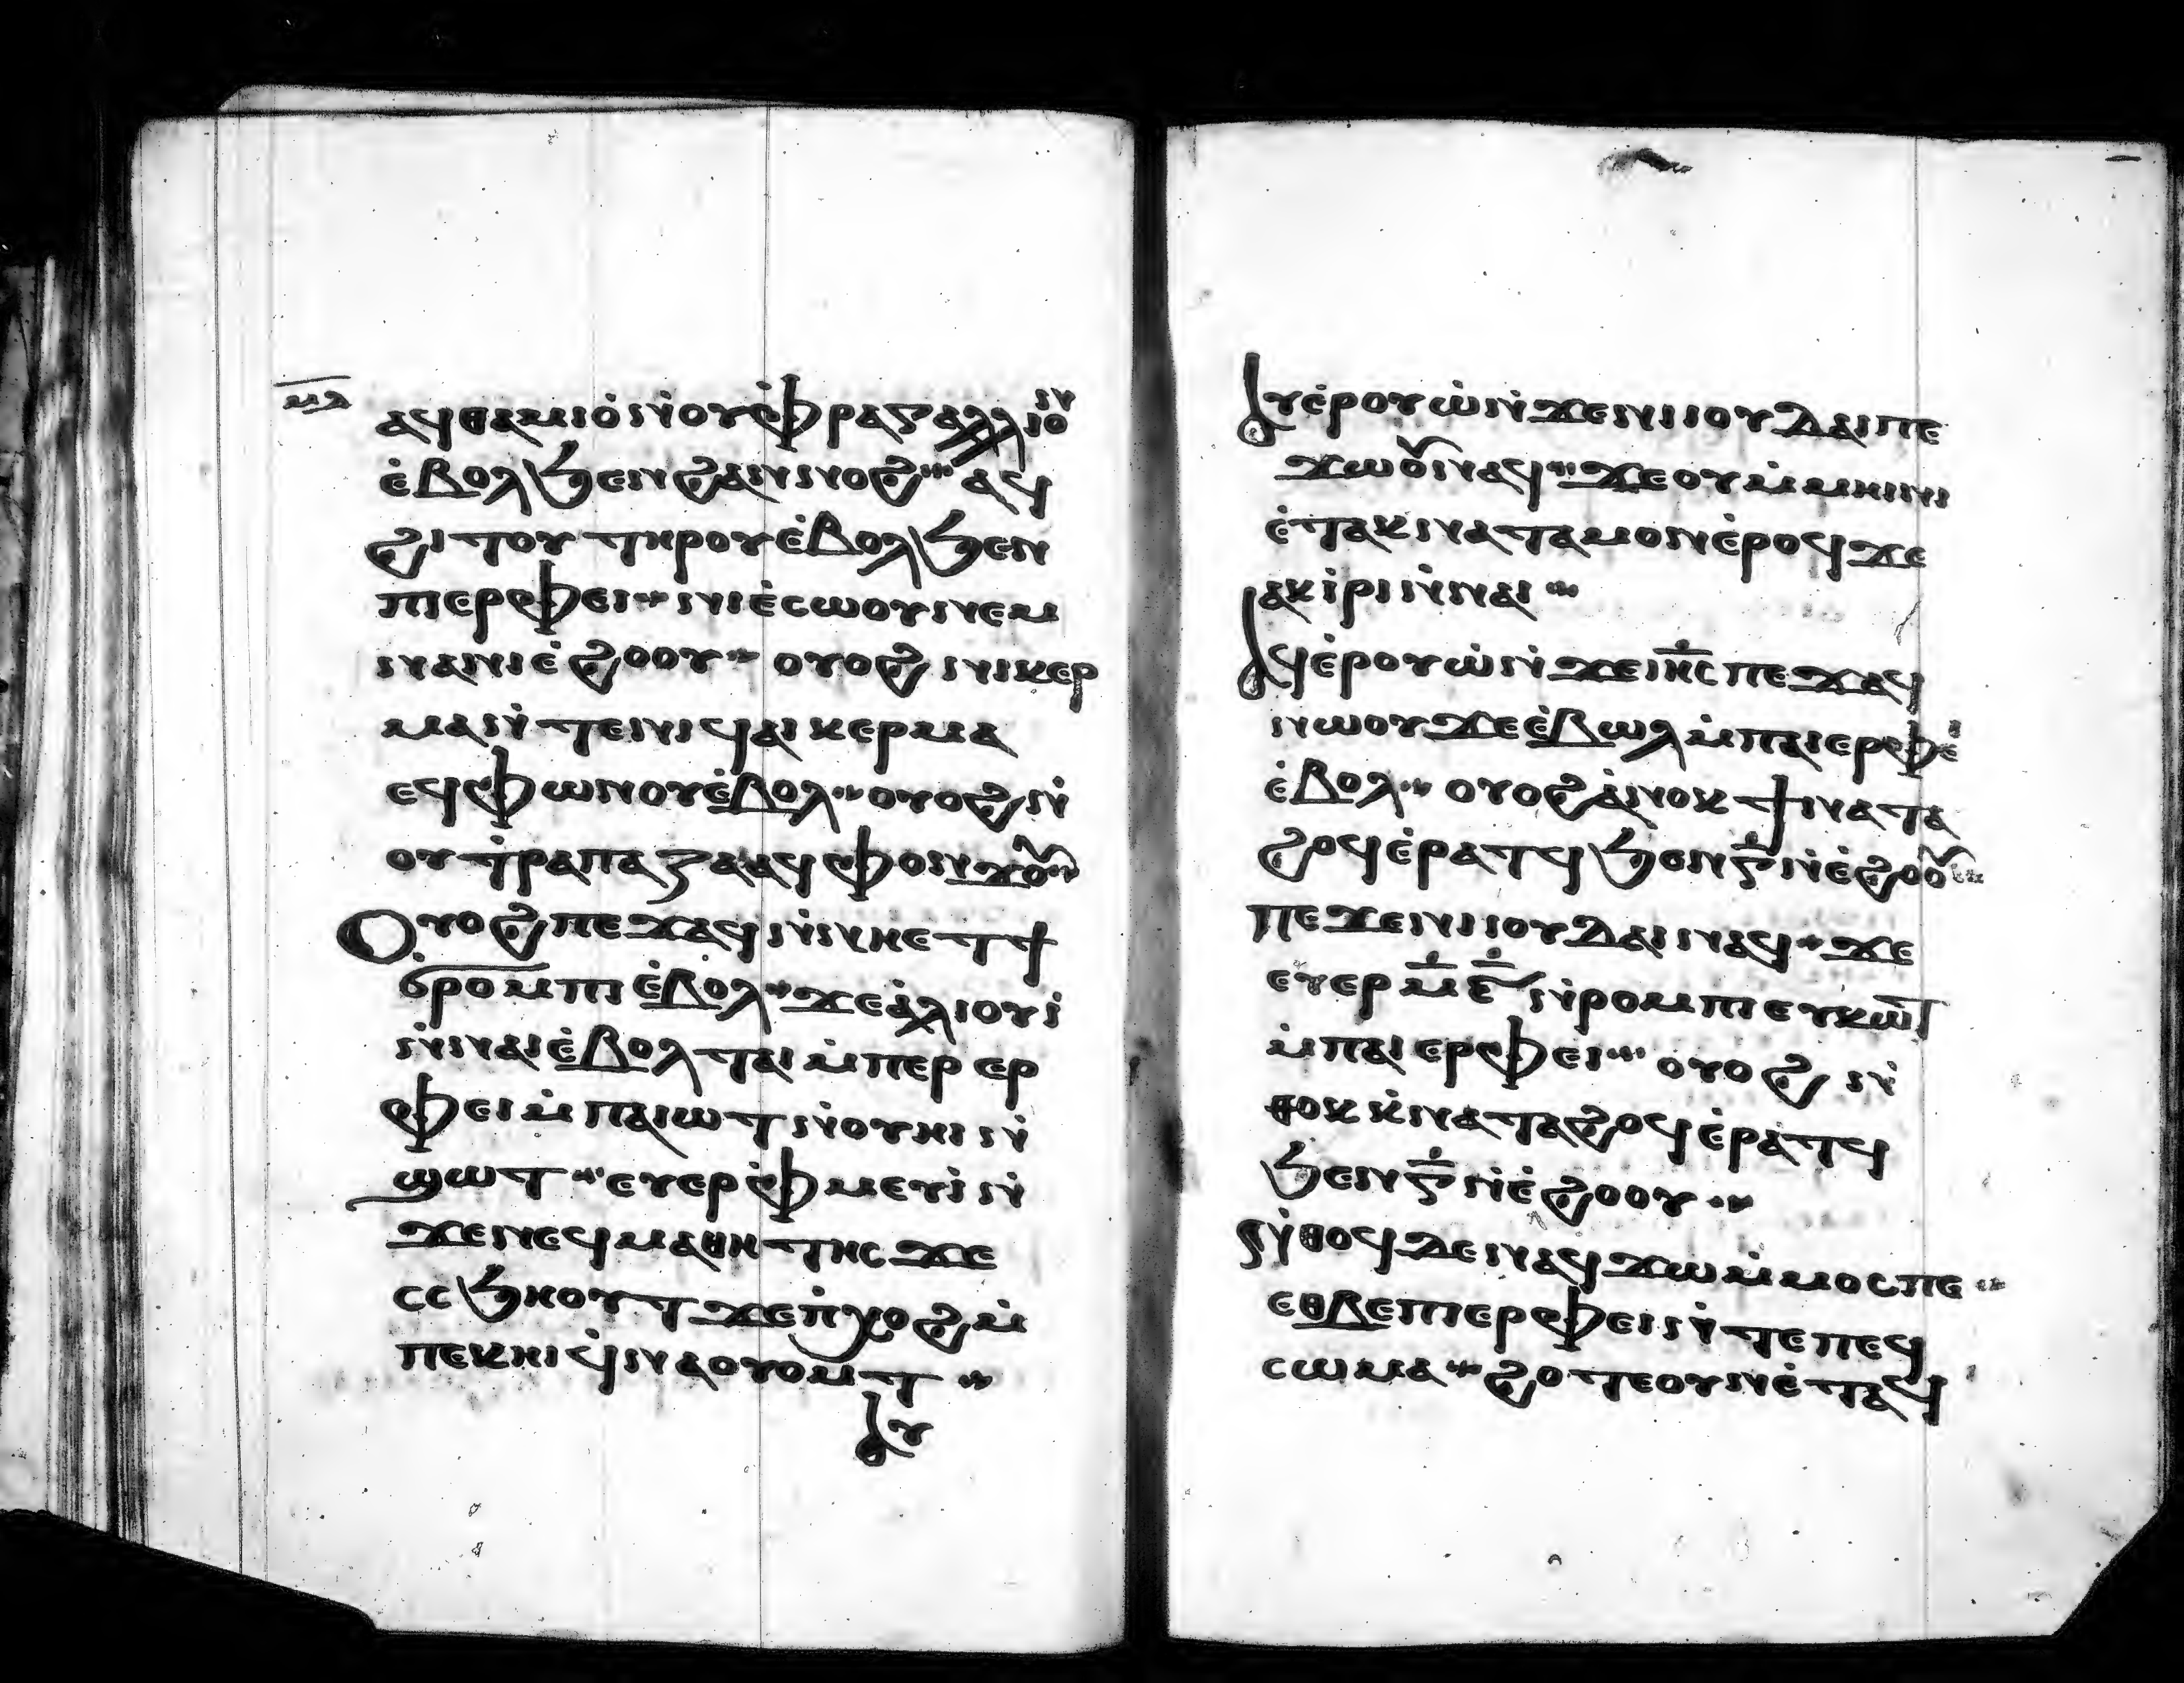 ⲙⲁ
ⲁϥⲑⲁⲙⲓⲟ̇ ⲛ̇ⲟⲩⲫ̇ⲣⲁⲅⲁⲗⲗⲓⲟⲛ
ⲉ̇ⲃⲟⲗϧⲉⲛϩⲁⲛⲛⲟϩ ⲁϥ
ϩⲓⲧⲟⲩ ⲧⲏⲣⲟⲩⲉ̇ⲃⲟⲗϧⲉⲛ
ⲡⲓⲉⲣⲫⲉⲓ ⲛⲓⲉ̇ⲥⲱⲟⲩⲛⲉⲙ
ⲛⲁⲛⲓⲉ̇ϩⲱⲟⲩ ⲟⲩⲟϩ ⲛⲓⲕⲉⲣ
ⲙⲁⲛ̇ⲧⲉⲛⲓϥⲁⲓⲕⲉⲣⲙⲁ
ⲉϥⲫⲱⲛⲟⲩⲉ̇ⲃⲟⲗ ⲟⲩⲟϩⲛ̇
ⲟⲩⲧ̇ⲣⲁⲡⲁⲍⲁⲁϥⲫⲟⲛϫⲟⲩ
Ⲟⲩⲟϩ ⲡⲉϫⲁϥ ⲛ̇ⲛⲏⲉⲧϯ
ϭⲣⲟⲙⲡⲓ ⲉ̇ⲃⲟⲗ ϫⲉⲁ̇ⲗⲓⲟⲩⲓ̇
ⲛ̇ⲛⲁⲓⲉ̇ⲃⲟⲗ ⲧⲁⲓ ⲙ̇ⲡⲉⲣ ⲉⲣ
ⲫⲉⲓ ⲙ̇ⲡⲁⲓⲱⲧ ⲛ̇ⲟⲩⲏⲓ ⲛ̇
ϣⲱⲧ ⲉⲩⲉⲣⲫ̇ⲙⲉⲩⲓ̇ ⲛ̇
ϫⲉⲛⲉϥⲙⲁⲑⲏⲧⲏⲥ ϫⲉ
ⲥⲥϧⲏⲟⲩⲧ ϫⲉⲡ̇ⲭⲟϩ ⲙ̇
ⲡⲉⲕⲏⲓ ϥ̇ⲛⲁⲟⲩⲟⲙⲧ
Ⲁⲩ
Ⲁⲩⲉ̇ⲣⲟⲩⲱ̇ ⲛ̇ϫⲉⲛⲓⲓⲟⲩⲇⲁⲓ ⲡⲉ
ϫⲱⲟⲩ ⲛⲁϥ ϫⲉ ⲟⲩ ⲙ̇ⲙⲏⲓⲛⲓ
ⲉ̇ⲧⲁⲕⲛⲁⲧⲁⲙⲟⲛⲉ̇ⲣⲟϥϫⲉ
ⲁⲕⲓ̇ⲣⲓ ⲛ̇ⲛⲁⲓ
Ⲁϥⲉ̇ⲣⲟⲩⲱ̇ ⲛ̇ϫⲉⲓⲏⲥ ⲡⲉϫⲁϥ
ⲛⲱⲟⲩ ϫⲉⲉ̇ⲃⲱⲗ ⲙ̇ⲡⲁⲓⲉⲣⲫⲉⲓ̇
ⲉ̇ⲃⲟⲗ ⲟⲩⲟϩ ⲁ̇ⲛⲟⲕ ϯⲛⲁⲧⲁ
ϩⲟϥ ⲉ̇ⲣⲁⲧϥ ϧⲉⲛ ⲅ̅ ⲛ̇ⲉ̇ϩⲟⲟⲩ
ⲡⲉϫⲉⲛⲓⲓⲟⲩⲇⲁⲓ ⲛⲁϥ ϫⲉ
ⲉⲩⲉⲣ ⲙ̅ⲉ̅ ⲛ̇ⲣⲟⲙⲡⲓ ⲉⲩⲕⲱⲧ
ⲙ̇ⲡⲁⲓ ⲉⲣⲫⲉⲓ ⲟⲩⲟϩ ⲛ̇
ⲑⲟⲕ ⲕ̇ⲛⲁⲧⲁϩⲟϥ ⲉ̇ⲣⲁⲧϥ
ϧⲉⲛ ⲅ̅ ⲛ̇ⲉ̇ϩⲟⲟⲩ
Ⲛ̇ⲑⲟϥ ⲇⲉ ⲛⲁϥϫⲱ ⲙ̇ⲙⲟⲥ ⲡⲉ
ⲉⲑⲃⲉ ⲡⲓⲉⲣⲫⲉⲓ ⲛ̇ⲧⲉ ⲡⲉϥ
ⲥⲱⲙⲁ ϩⲟⲧⲉ ⲟⲩⲛ ⲉ̇ⲧⲁϥ